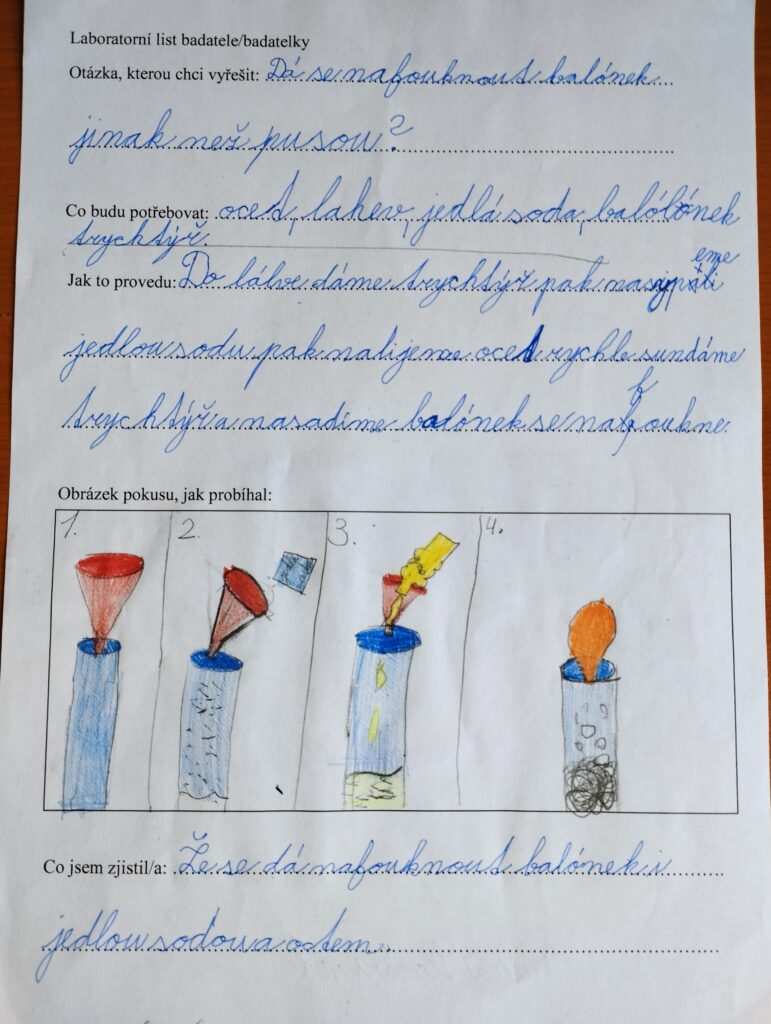 Laboratorní list badatele/badatelky
Otázka, kterou chci vyřešit: Dá se nafouknout balónek
jinak než pusou?
Co budu potřebovat: ocet, lahev, jedlá soda, balólónek
trychtýř.
Jak to provedu: Do láhve dáme trychtýř pak nasypeme
jedlou sodu pak nalijeme ocet rychle sundáme
trychtýř a nasadíme balónek se nafoukne.
Obrázek pokusu, jak probíhal:
1. 2. 3. 4.
Co jsem zjistil/a: Že se dá nafouknout balónek i
jedlou sodou a octem.